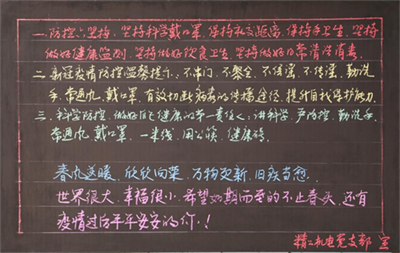 一、防控六坚持：坚持科学戴口罩，保持社交距离，保持手卫生，坚持
做好健康监测，坚持做好饮食卫生，坚持做好日常清洁消毒。
二、新冠疫情防控温馨提示：不串门、不聚会、不信谣、不传谣、勤洗
手、常通风、戴口罩，有效切断病毒的传播途径，提升自我保护能力。
三、科学防疫，做好自己健康的第一责任人：讲科学、严防控、勤洗手、
常通风、戴口罩、一米线、用公筷、健康码。
春风送暖，欣欣向荣，万物更新，旧疾当愈。
世界很大，幸福很小，希望如期而至的不止春天，还有
疫情过后平平安安的你！
精工机电党支部 宣